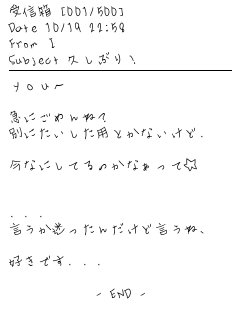 受信箱 [001/500]
Date 10/19 22:58
From I
Subject 久しぶり!
your
急にごめんね?
別にたいした用とかないけど.
今なにしてるのかなぁって☆
...
言うか迷ったんだけど言うね、
好きです...
- END -